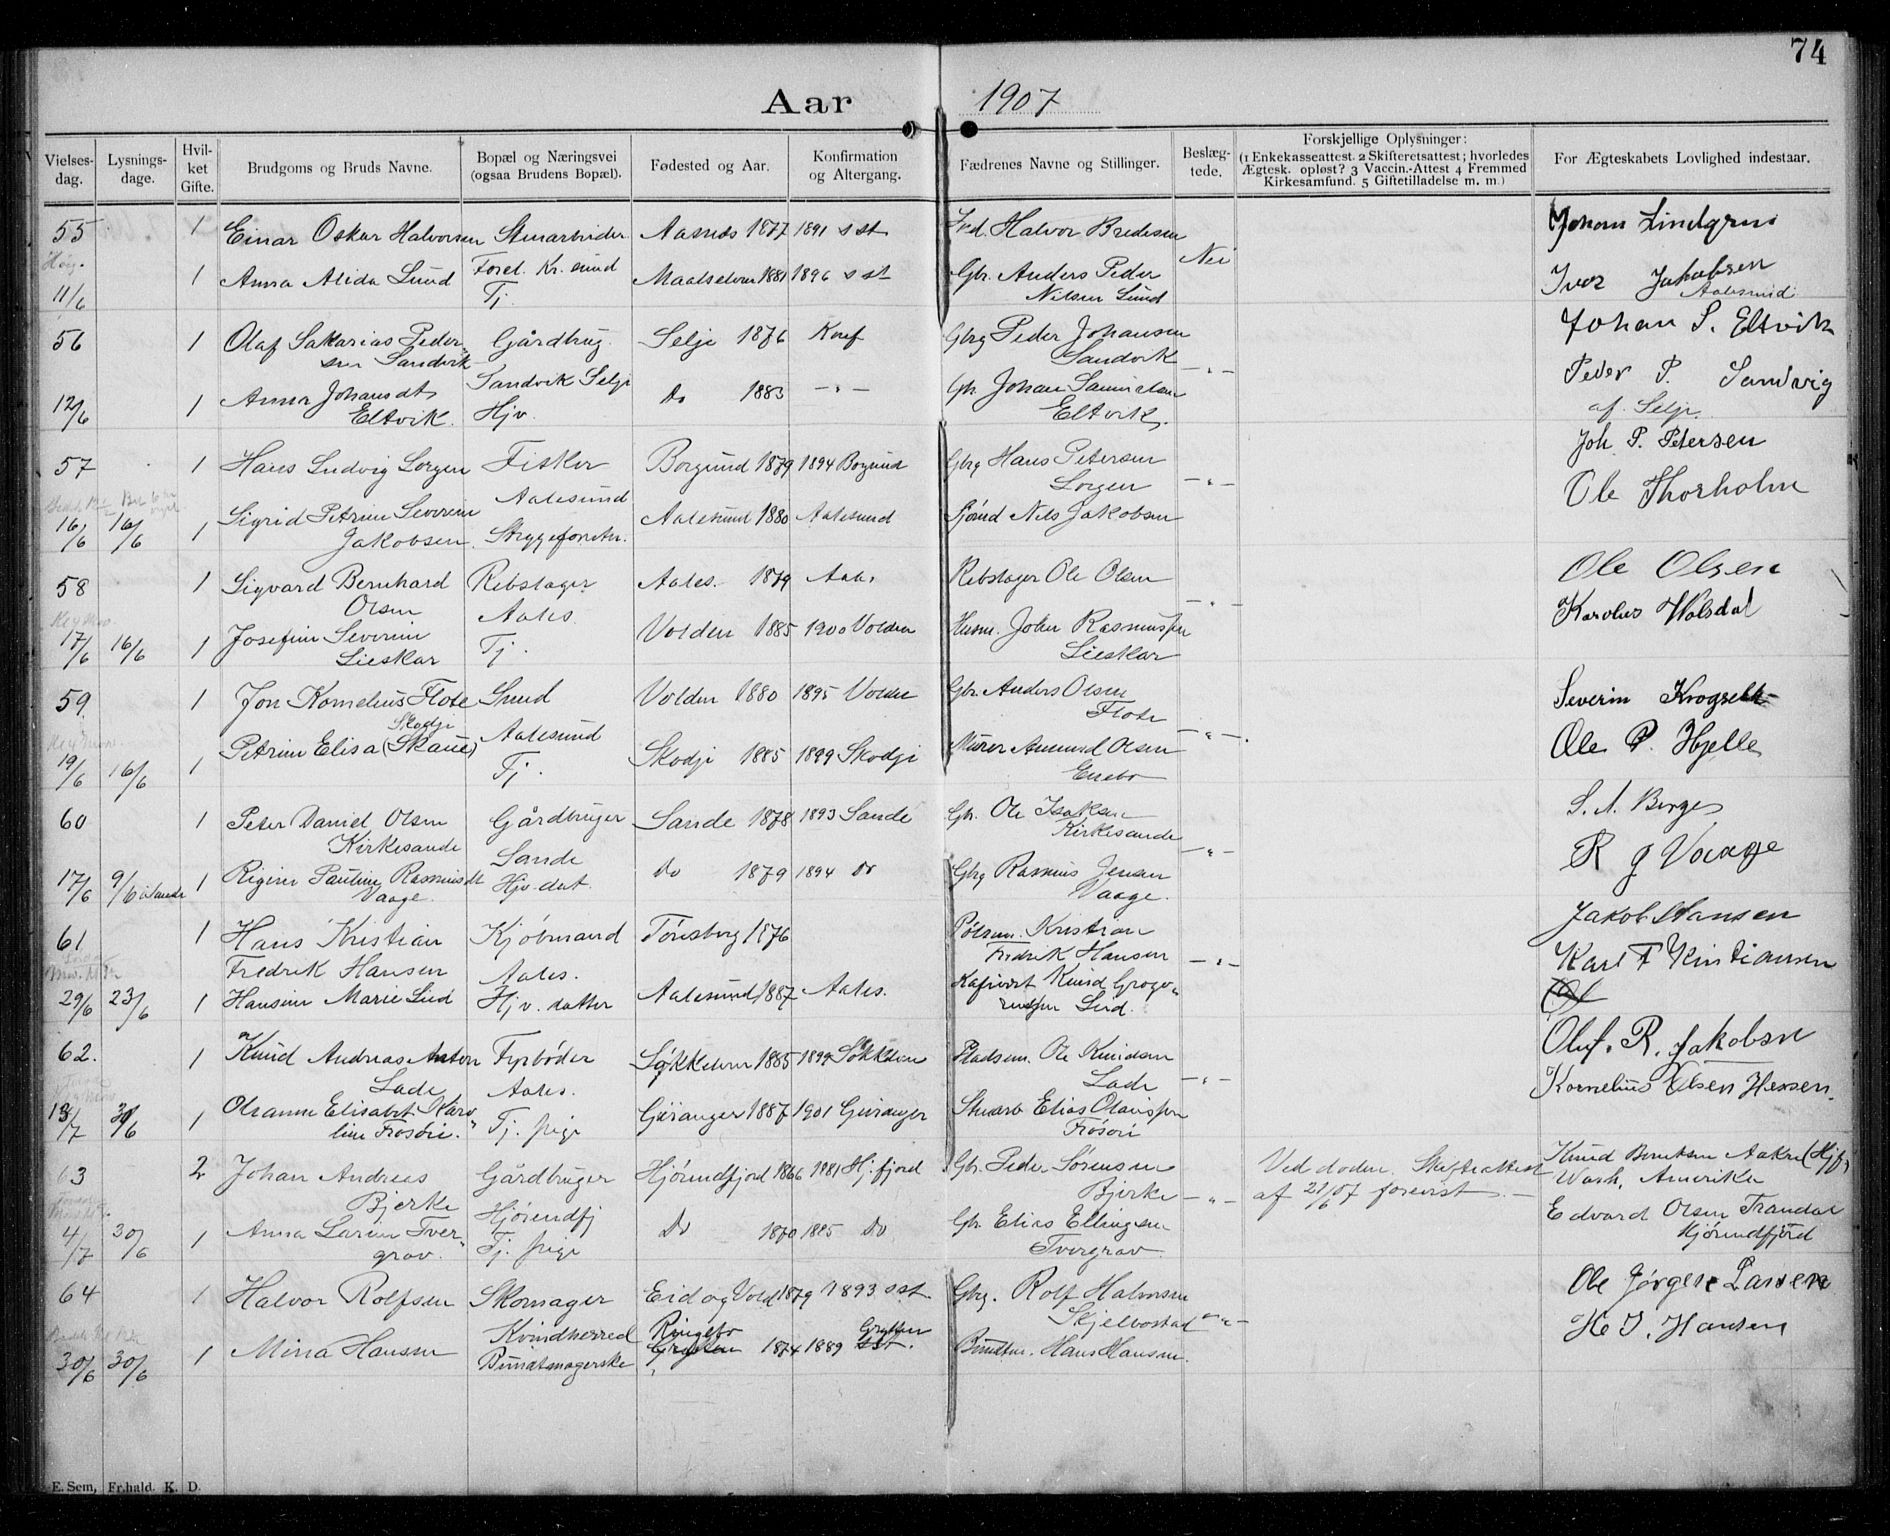 74
Aar 1907
Vielses-dag. Lysnings-dage. Hvilket Gifte. Brudgoms og Bruds Navne. Bopæl og Næringsvei (ogsaa Brudens Bopæl). Fødested og Aar. Konfirmation og Altergang. Fædrenes Navne og Stillinger. Beslægtede. Forskjellige Oplysninger: (1 Enkekasseattest. 2 Skifteretsattest; hvorledes Ægtesk. opløst? 3 Vaccin.-Attest 4 Fremmed Kirkesamfund. 5 Giftetilladelse m. m.) For Ægteskabets Lovlighed indestaar.
55 1 Einar Oskar Halvorsen Stenarbeider Aasnes 1877 1891 sst Halvor Bredesen Johan Lindgren
11/6 1 Anna Alida Lund Forel. Kr.sund Maalselven 1881 1896 sst Gbr. Anders Peder Nei Ivar Jakobsen
Tj. Nilsen Lund Aalesund
56 1 Olaf Sakarias Peder- Gårdbrug. Selje 1876 Konf Gbrg Peder Johansen Johan S. Eltvik
sen Sandvik Sandvik Selje Sandvik -"- Peder P. Sandvig
12/6 1 Anna Johansdt Hjv. Do 1883 -"- Gbr. Johan Samuelsen af Selje
Eltvik. Eltvik.
57 1 Hans Ludvig Sorgen Fisker Borgund 1879 1894 Borgund Gbrg Hans Petersen Joh. P. Petersen
Aalesund Sorgen -"- Ole Thorholm
16/6 16/6 1 Sigrid Petrine Severine Aalesund 1880 Aalesund Nils Jakobsen
Jakobsen Strygeforretn.
58 1 Sigvard Bernhard Rebslager Aales. 1879 Aales. Rebslager Ole Olsen Ole Olsen
Olsen Aales. -"- Karolus Wolsdal
17/6 16/6 1 Josefine Severine Tj. Volden 1885 1900 Volden Husm. John Rasmussen
Lieskar Lieskar
59 1 Jon Kornelius Flote Smed Volden 1880 1895 Volden Gbr. Anders Olsen Severin Krogsett
Skodje Aalesund Flote -"-. Ole P. Hjelle
19/6 16/6 1 Petrine Elisa (Skaue) Tj. Skodje 1885 1899 Skodje Murer Amund Olsen
Enebo
60 1 Peter Daniel Olsen Gårdbruger Sande 1878 1893 Sande Gb. Ole Isaksen S. A. Berge
Kirkesande Sande Kirkesande -"- R g Vaage
17/6 9/6 i Sande 1 Regine Pauline Rasmusdt Hjv. dat. Do 1879 1894 do Gbrg Rasmus Jensen
Vaage. Vaage.
61 1 Hans Kristian Kjøbmand Tønsberg 1876 Pølsem. Kristian Jakob Hansen
Fredrik Hansen Aales. Fredrik Hansen -"- Karl F Kristiansen
29/6 23/6 1 Hansine Marie Lied Hjv. datter Aalesund 1887 Aales. Kafévert Knud
Lied.
62. 1 Knud Andreas Anton Fyrbøder Søkkelven 1885 1899 Søkkelven Pladsm. Ole Knudsen Oluf. R. Jakobsen
Lade Aales. Lade -"- Kornelius Olsen Hessen.
13/7 30/6 1 Olianne Elisabet Karo- Tj. pige Geiranger 1887 1901 Geiranger Stuearb Elias Olaussen
line Frøsøri. Frøsøri
63 2 Johan Andreas Gårdbruger Hjørundfjord 1866 1881 Hj.fjord Gbr. Peder Sørensen Ved døden. Skifteattest Knud Berntsen Aakre (Hjf)
Bjerke Hjørendfj Bjerke -"- af 21/6 07 forevist. - Wash, Amerika
4/7 30/6 1 Anna Larine Tver- Tj. pige Do 1870 1885 Do Gbr. Elias Ellingsen Edvard Olsen Trandal
grov. Tvergrov Hjørundfjord
64 1 Halvor Rolfsen Skomager Eid og Vold 1879 1893 sst. Gbrg. Rolf Halvorsen Ole Jørgen Larsen
Kvindherred Ringebo Grytten Skjelbostad -"- H J. Hansen
30/6 30/6 1 Mina Hansen Bundtmagerske Grytten 1874 1889 sst. Bundtm. Hans Hansen.
E. Sem, Fr.hald. K. D.